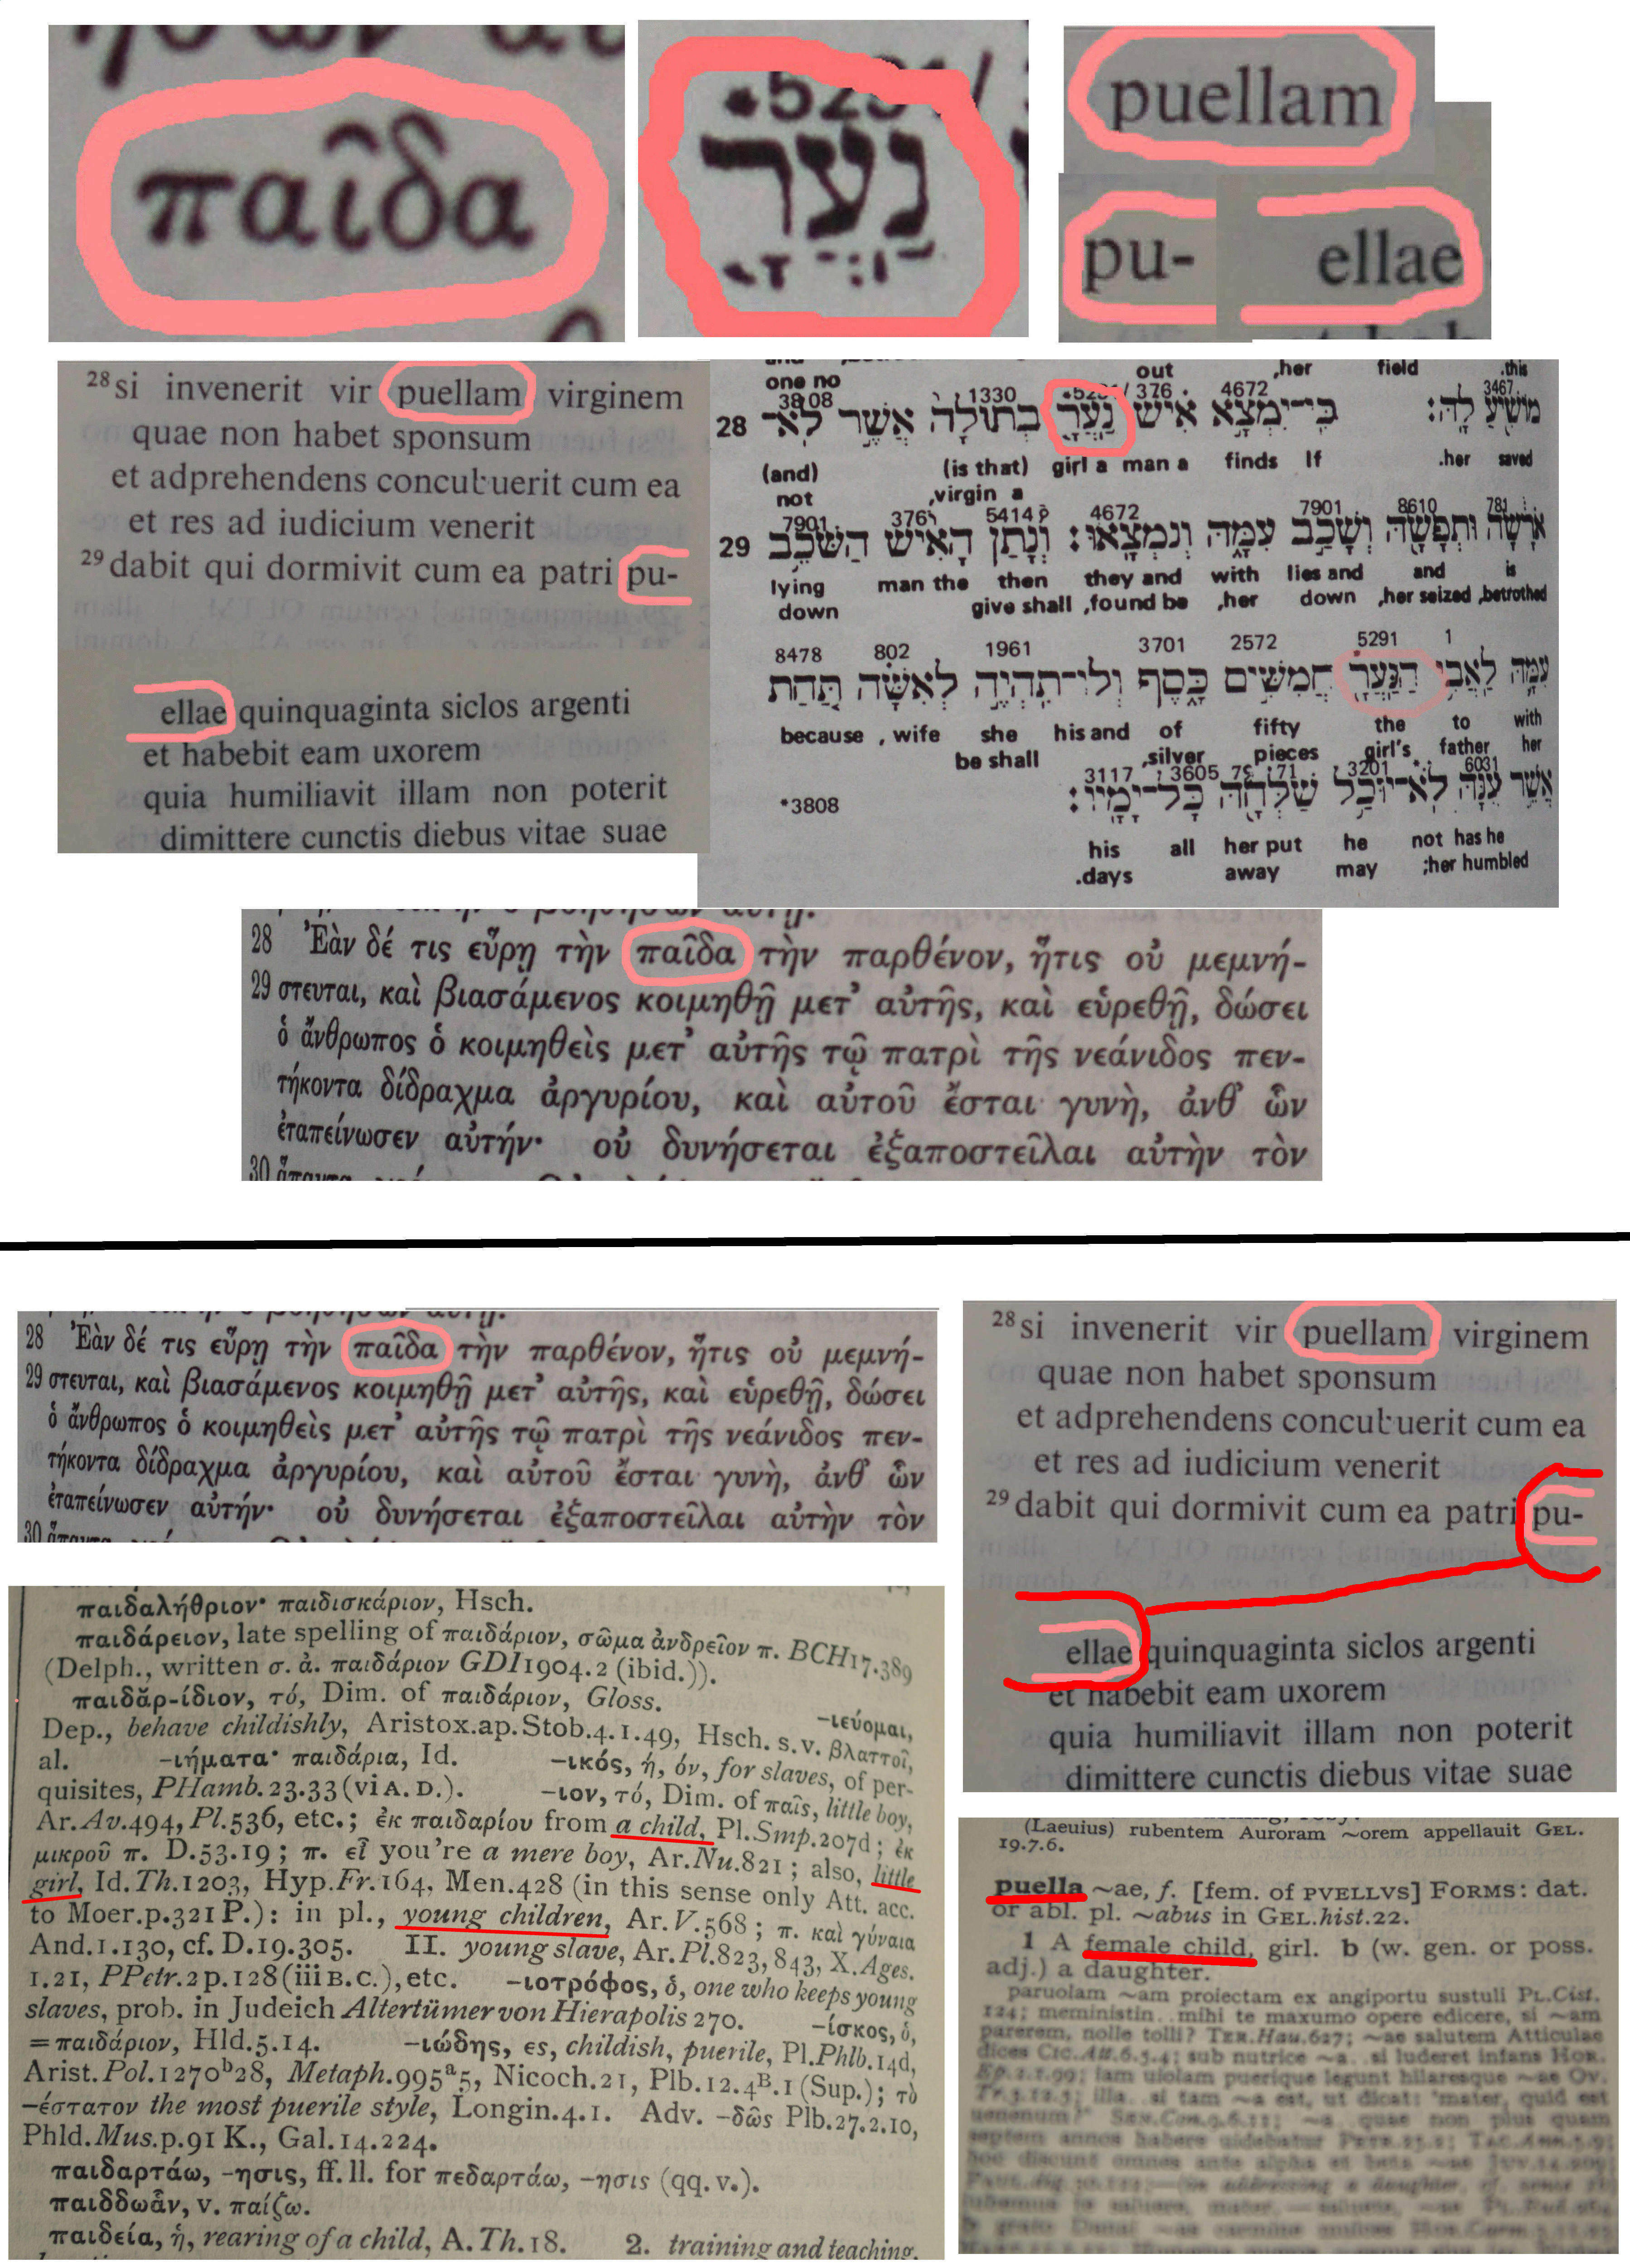 παῖδα
נַעֲרָ
puellam
pu-
ellae
28 si invenerit vir puellam virginem
quae non habet sponsum
et adprehendens concubuerit cum ea
et res ad iudicium venerit
29 dabit qui dormivit cum ea patri pu-
ellae quinquaginta siclos argenti
et habebit eam uxorem
quia humiliavit illam non poterit
dimittere cunctis diebus vitae suae
out ,her field .this
one no
3808 1330 376 4672 3467
28 מוֹשִׁיעַ לָהּ׃ כִּי־יִמְצָא אִישׁ נַעֲרָ בְתוּלָה אֲשֶׁר לֹא־
(and) (is that) girl a man a finds If .her saved
not ,virgin a
7901 376 5414 4672 7901 8610 781
29 אֹרָשָׂה וּתְפָשָׂהּ וְשָׁכַב עִמָּהּ וְנִמְצָאוּ׃ וְנָתַן הָאִישׁ הַשֹּׁכֵב
lying man the then they and with lies and and is
down give shall ,found be ,her down ,her seized ,betrothed
8478 802 1961 3701 2572 5291 1
עִמָּהּ לַאֲבִי הַנַּעֲרָ חֲמִשִּׁים כָּסֶף וְלוֹ־תִהְיֶה לְאִשָּׁה תַּחַת
because , wife she his and of fifty the to with
be shall ,silver pieces girl's father her
3117 3605 7971 3201 6031
*3808 אֲשֶׁר עִנָּהּ לֹא־יוּכַל שַׁלְּחָהּ כָּל־יָמָיו׃
his all her put he not has he
.days away may ;her humbled
28 Ἐὰν δέ τις εὕρῃ τὴν παῖδα τὴν παρθένον, ἥτις οὐ μεμνή-
29 στευται, καὶ βιασάμενος κοιμηθῇ μετ’ αὐτῆς, καὶ εὑρεθῇ, δώσει
ὁ ἄνθρωπος ὁ κοιμηθεὶς μετ’ αὐτῆς τῷ πατρὶ τῆς νεάνιδος πεν-
τήκοντα δίδραχμα ἀργυρίου, καὶ αὐτοῦ ἔσται γυνὴ, ἀνθ’ ὧν
ἐταπείνωσεν αὐτήν· οὐ δυνήσεται ἐξαποστεῖλαι αὐτὴν τὸν
30
28 Ἐὰν δέ τις εὕρῃ τὴν παῖδα τὴν παρθένον, ἥτις οὐ μεμνή-
29 στευται, καὶ βιασάμενος κοιμηθῇ μετ’ αὐτῆς, καὶ εὑρεθῇ, δώσει
ὁ ἄνθρωπος ὁ κοιμηθεὶς μετ’ αὐτῆς τῷ πατρὶ τῆς νεάνιδος πεν-
τήκοντα δίδραχμα ἀργυρίου, καὶ αὐτοῦ ἔσται γυνὴ, ἀνθ’ ὧν
ἐταπείνωσεν αὐτήν· οὐ δυνήσεται ἐξαποστεῖλαι αὐτὴν τὸν
30
28 si invenerit vir puellam virginem
quae non habet sponsum
et adprehendens concubuerit cum ea
et res ad iudicium venerit
29 dabit qui dormivit cum ea patri pu-
ellae quinquaginta siclos argenti
et habebit eam uxorem
quia humiliavit illam non poterit
dimittere cunctis diebus vitae suae
παιδαλήθριον· παιδισκάριον, Hsch.
παιδάρειον, late spelling of παιδάριον, σῶμα ἀνδρεῖον π. BCH17.389
(Delph., written σ. ἀ. παιδάριον GDI1904.2 (ibid.)).
παιδᾰρ-ίδιον, τό, Dim. of παιδάριον, Gloss. -ιεύομαι,
Dep., behave childishly, Aristox.ap.Stob.4.1.49, Hsch. s.v. βλαττοῖ,
al. -ιήματα· παιδάρια, Id. -ικός, ή, όν, for slaves, of per-
quisites, PHamb.23.33 (vi A. D.). -ιον, τό, Dim. of παῖς, little boy,
Ar.Av.494, Pl.536, etc.; ἐκ παιδαρίου from a child, Pl.Smp.207d; ἐκ
μικροῦ π. D.53.19; π. εἶ you're a mere boy, Ar.Nu.821; also, little
girl, Id.Th.1203, Hyp.Fr.164, Men.428 (in this sense only Att. acc.
to Moer.p.321P.): in pl., young children, Ar.V.568; π. καὶ γύναια
And.1.130, cf. D.19.305. II. young slave, Ar.Pl.823, 843, X.Ages.
1.21, PPetr.2p.128 (iii B.C.), etc. -ιοτρόφος, ὁ, one who keeps young
slaves, prob. in Judeich Altertümer von Hierapolis 270. -ίσκος, ὁ,
=παιδάριον, Hld.5.14. -ιώδης, ες, childish, puerile, Pl.Phlb.14d,
Arist.Pol.1270b28, Metaph.995a5, Nicoch.21, Plb.12.4B.1 (Sup.); τὸ
-έστατον the most puerile style, Longin.4.1. Adv. -δῶς Plb.27.2.10,
Phld.Mus.p.91 K., Gal.14.224.
παιδαρτάω, -ησις, ff. ll. for πεδαρτάω, -ησις (qq. v.).
παιδδωἄν, v. παίζω.
παιδεία, ἡ, rearing of a child, A.Th.18. 2. training and teaching,
(Laeuius) rubentem Auroram ~orem appellauit GEL.
19.7.6.
puella ~ae, f. [fem. of PVELLVS] FORMS: dat.
or abl. pl. ~abus in GEL.hist.22.
1 A female child, girl. b (w. gen. or poss.
adj.) a daughter.
paruolam ~am proiectam ex angiportu sustuli PL.Cist.
124; meministin.. mihi te maxumo opere edicere, si ~am
parerem, nolle tolli? TER.Hau.627; ~ae salutem Atticulae
dices CIC.Att.6.5.4; sub nutrice ~a.. si luderet infans HOR.